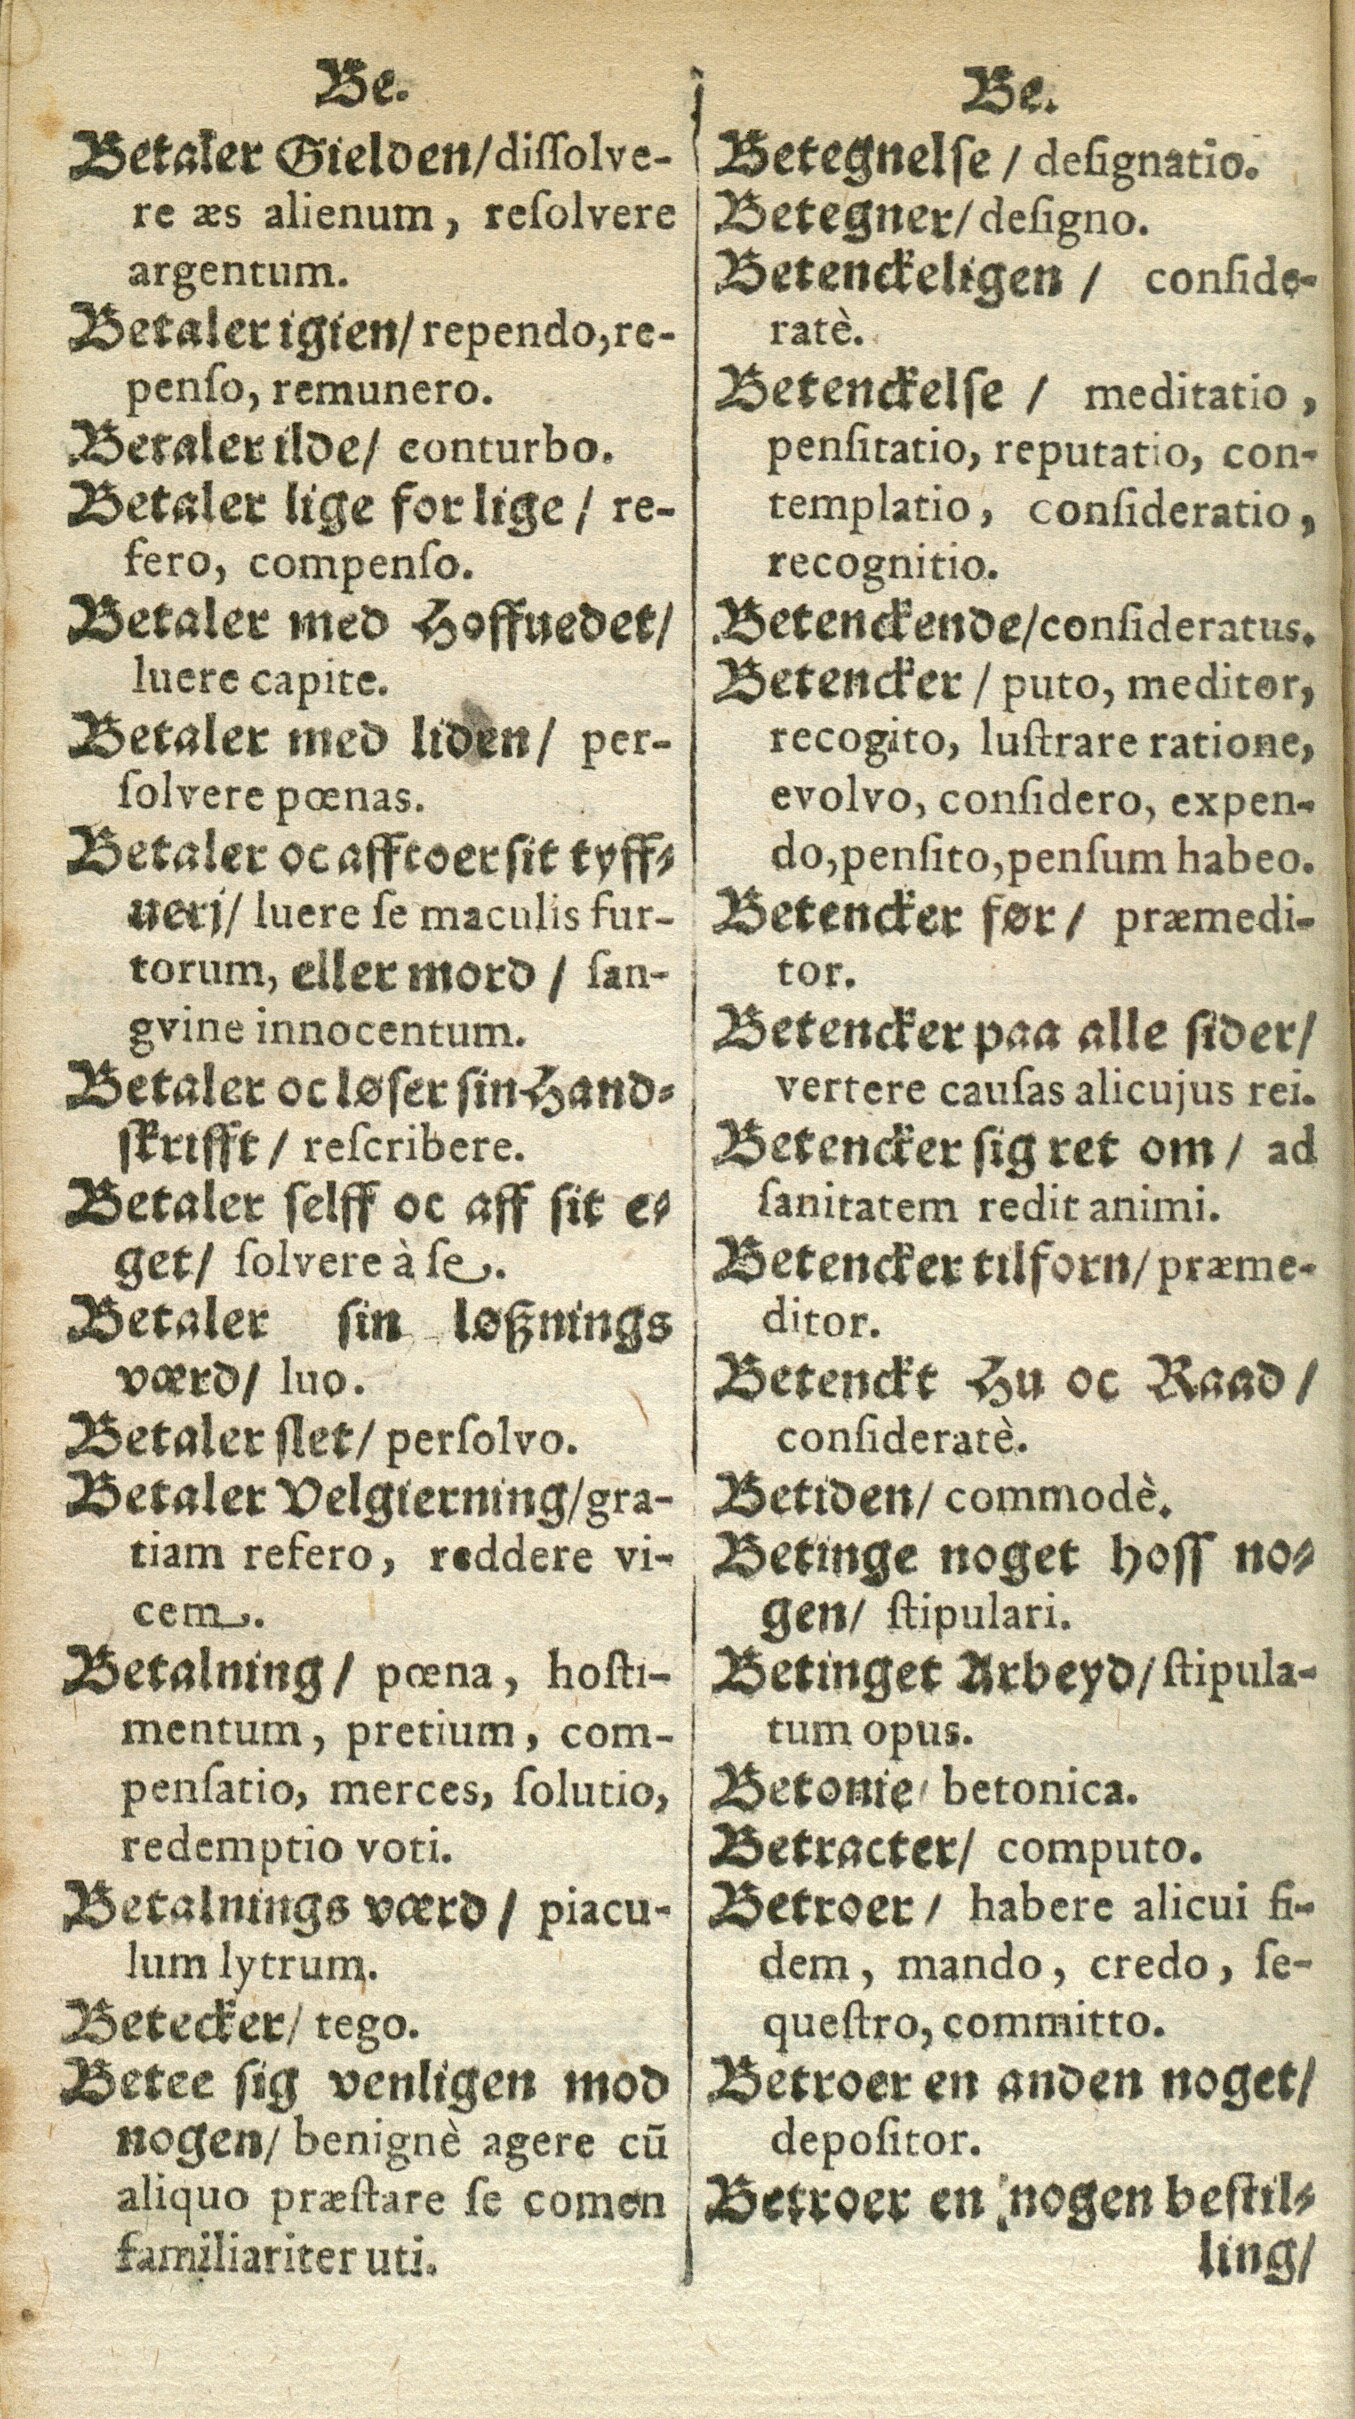 Be.
Betaler Gielden/ diſſolve-
re æs alienum, reſolvere
argentum.
Betaler igien/ rependo, re-
penſo, remunero.
Betaler ilde/ conturbo.
Betaler lige for lige/ re-
fero, compenſo.
Betaler med Hoffuedet/
luere capite.
Betaler med liden/ per-
ſolvere pœnas.
Betaler oc afftoer ſit tyff-
uerj/ luere ſe maculis fur-
torum, eller mord/ ſan-
gvine innocentum.
Betaler oc løſer ſin Hand-
ſkrifft/ reſcribere.
Betaler ſelff oc aff ſit e-
get/ ſolvere à ſe.
Betaler ſin løßnings
værd/ luo.
Betaler ſlet/ perſolvo.
Betaler Velgierning/ gra-
tiam refero, reddere vi-
cem.
Betalning/ pœna, hoſti-
mentum, pretium, com-
penſatio, merces, ſolutio,
redemptio voti.
Betalnings værd/ piacu-
lum lytrum.
Betecker/ tego.
Betee ſig venligen mod
nogen/ benignè agere cū
aliquo præſtare ſe comen
familiariter uti.
Be.
Betegnelſe/ deſignatio.
Betegner/ deſigno.
Betenckeligen/ conſide-
ratè.
Betenckelſe/ meditatio,
penſitatio, reputatio, con-
templatio, conſideratio,
recognitio.
Betenckende/ conſideratus.
Betencker/ puto, meditor,
recogito, luſtrare ratione,
evolvo, conſidero, expen-
do, penſito, penſum habeo.
Betencker før/ præmedi-
tor.
Betencker paa alle ſider/
vertere cauſas alicujus rei.
Betencker ſig ret om/ ad
ſanitatem redit animi.
Betencker tilforn/ præme-
ditor.
Betenckt Hu oc Raad/
conſideratè.
Betiden/ commodè.
Betinge noget hoſſ no-
gen/ ſtipulari.
Betinget Arbeyd/ ſtipula-
tum opus.
Betonie/ betonica.
Betracter/ computo.
Betroer/ habere alicui fi-
dem, mando, credo, ſe-
queſtro, committo.
Betroer en anden noget/
depoſitor.
Betroer en nogen beſtil-
ling/